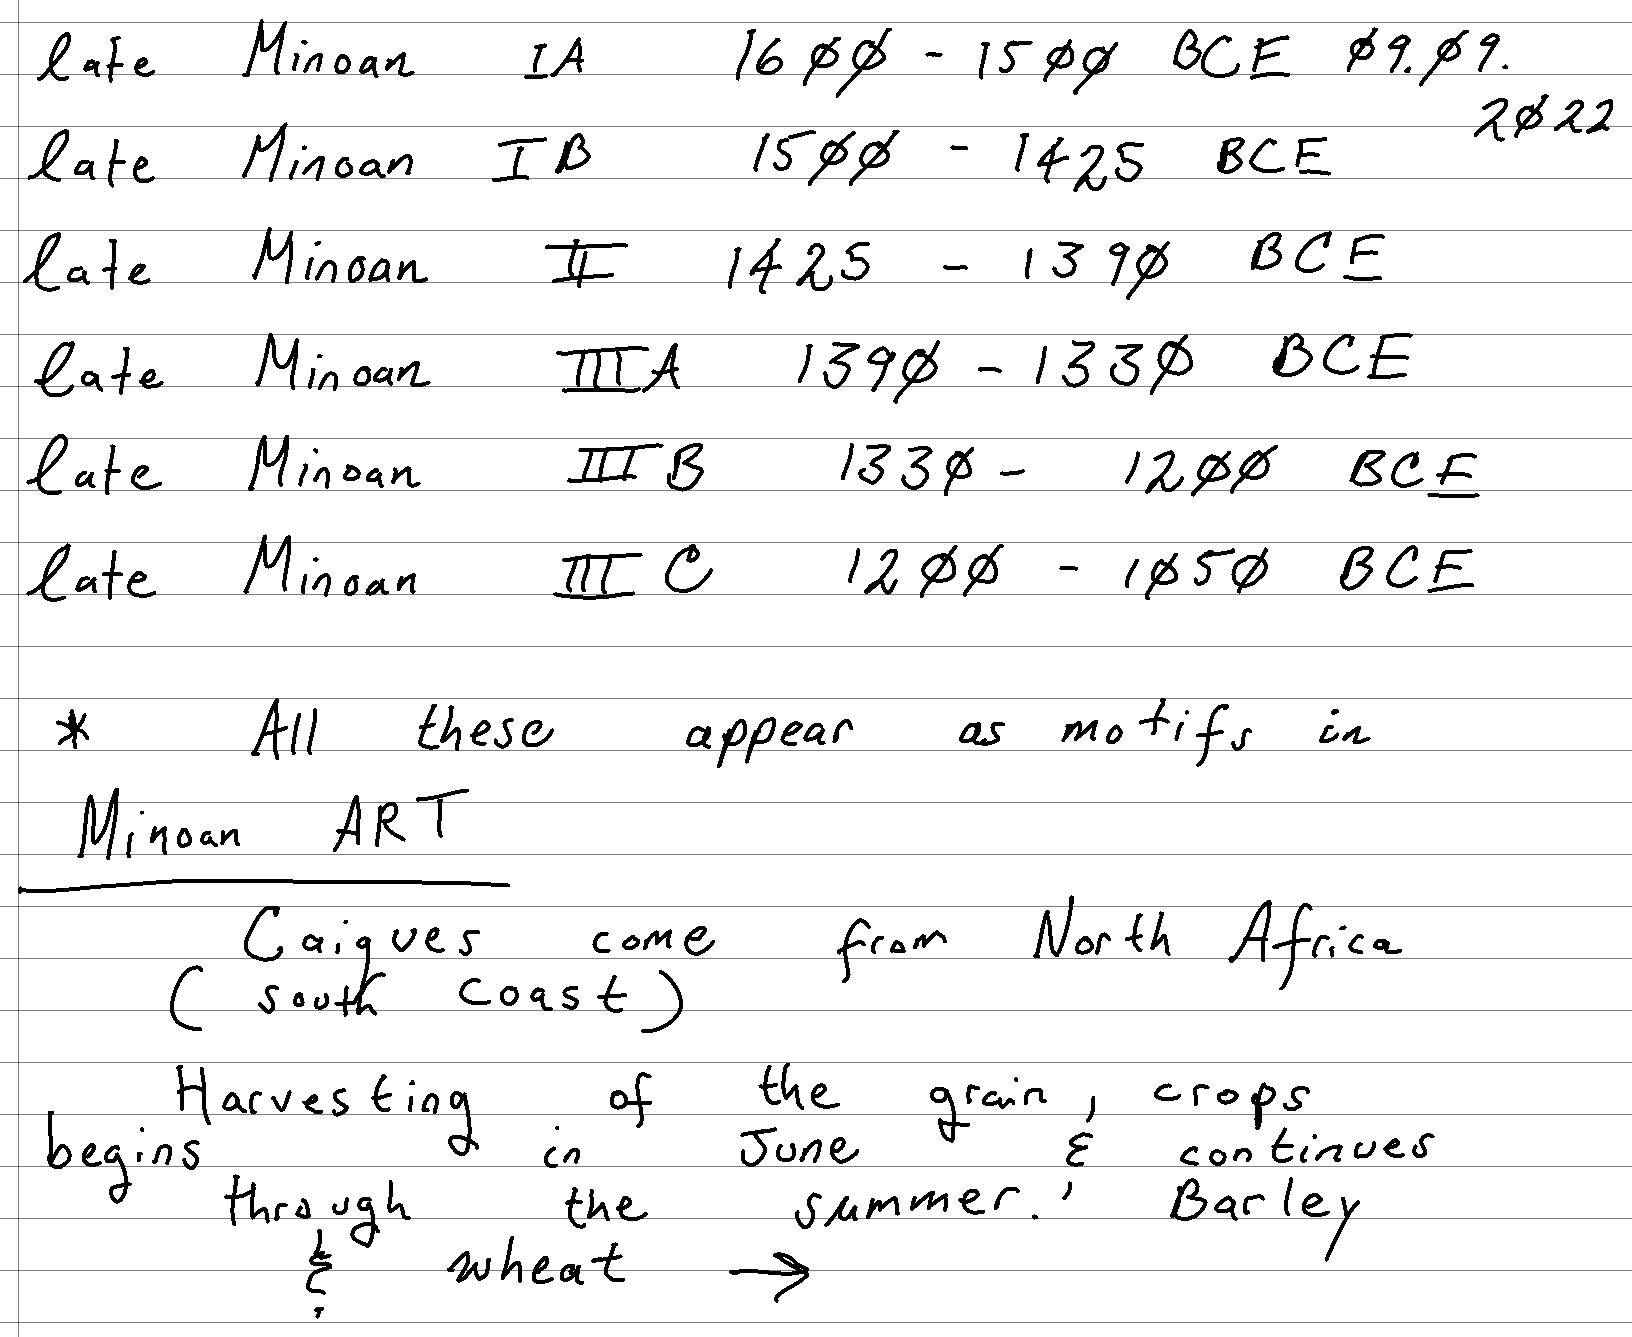 late Minoan IA 16ØØ - 15ØØ BCE Ø9.Ø9.
2Ø22
late Minoan IB 15ØØ - 1425 BCE
late Minoan II 1425 - 139Ø BCE
late Minoan IIIA 139Ø - 133Ø BCE
late Minoan IIIB 133Ø - 12ØØ BCE
late Minoan IIIC 12ØØ - 1Ø5Ø BCE
* All these appear as motifs in
Minoan ART
Caiques come from North Africa
(south coast)
Harvesting of the grain, crops
begins in June & continues
through the summer. Barley
& wheat →